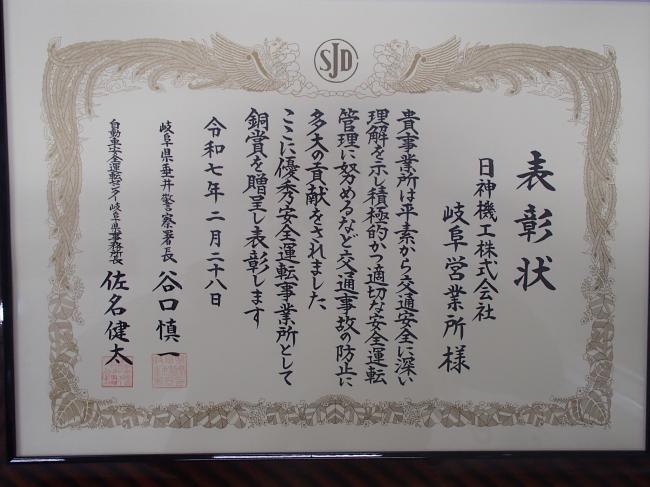 SJD
表彰状
日神機工株式会社
岐阜営業所様
貴事業所は平素から交通安全に深い
理解を示し積極的かつ適切な安全運転
管理に努めるなど交通事故の防止に
多大の貢献をされました
ここに優秀安全運転事業所として
銅賞を贈呈し表彰します
令和七年二月二十八日
岐阜県垂井警察署長 谷口慎一
自動車安全運転センター岐阜県事務所長 佐名健太